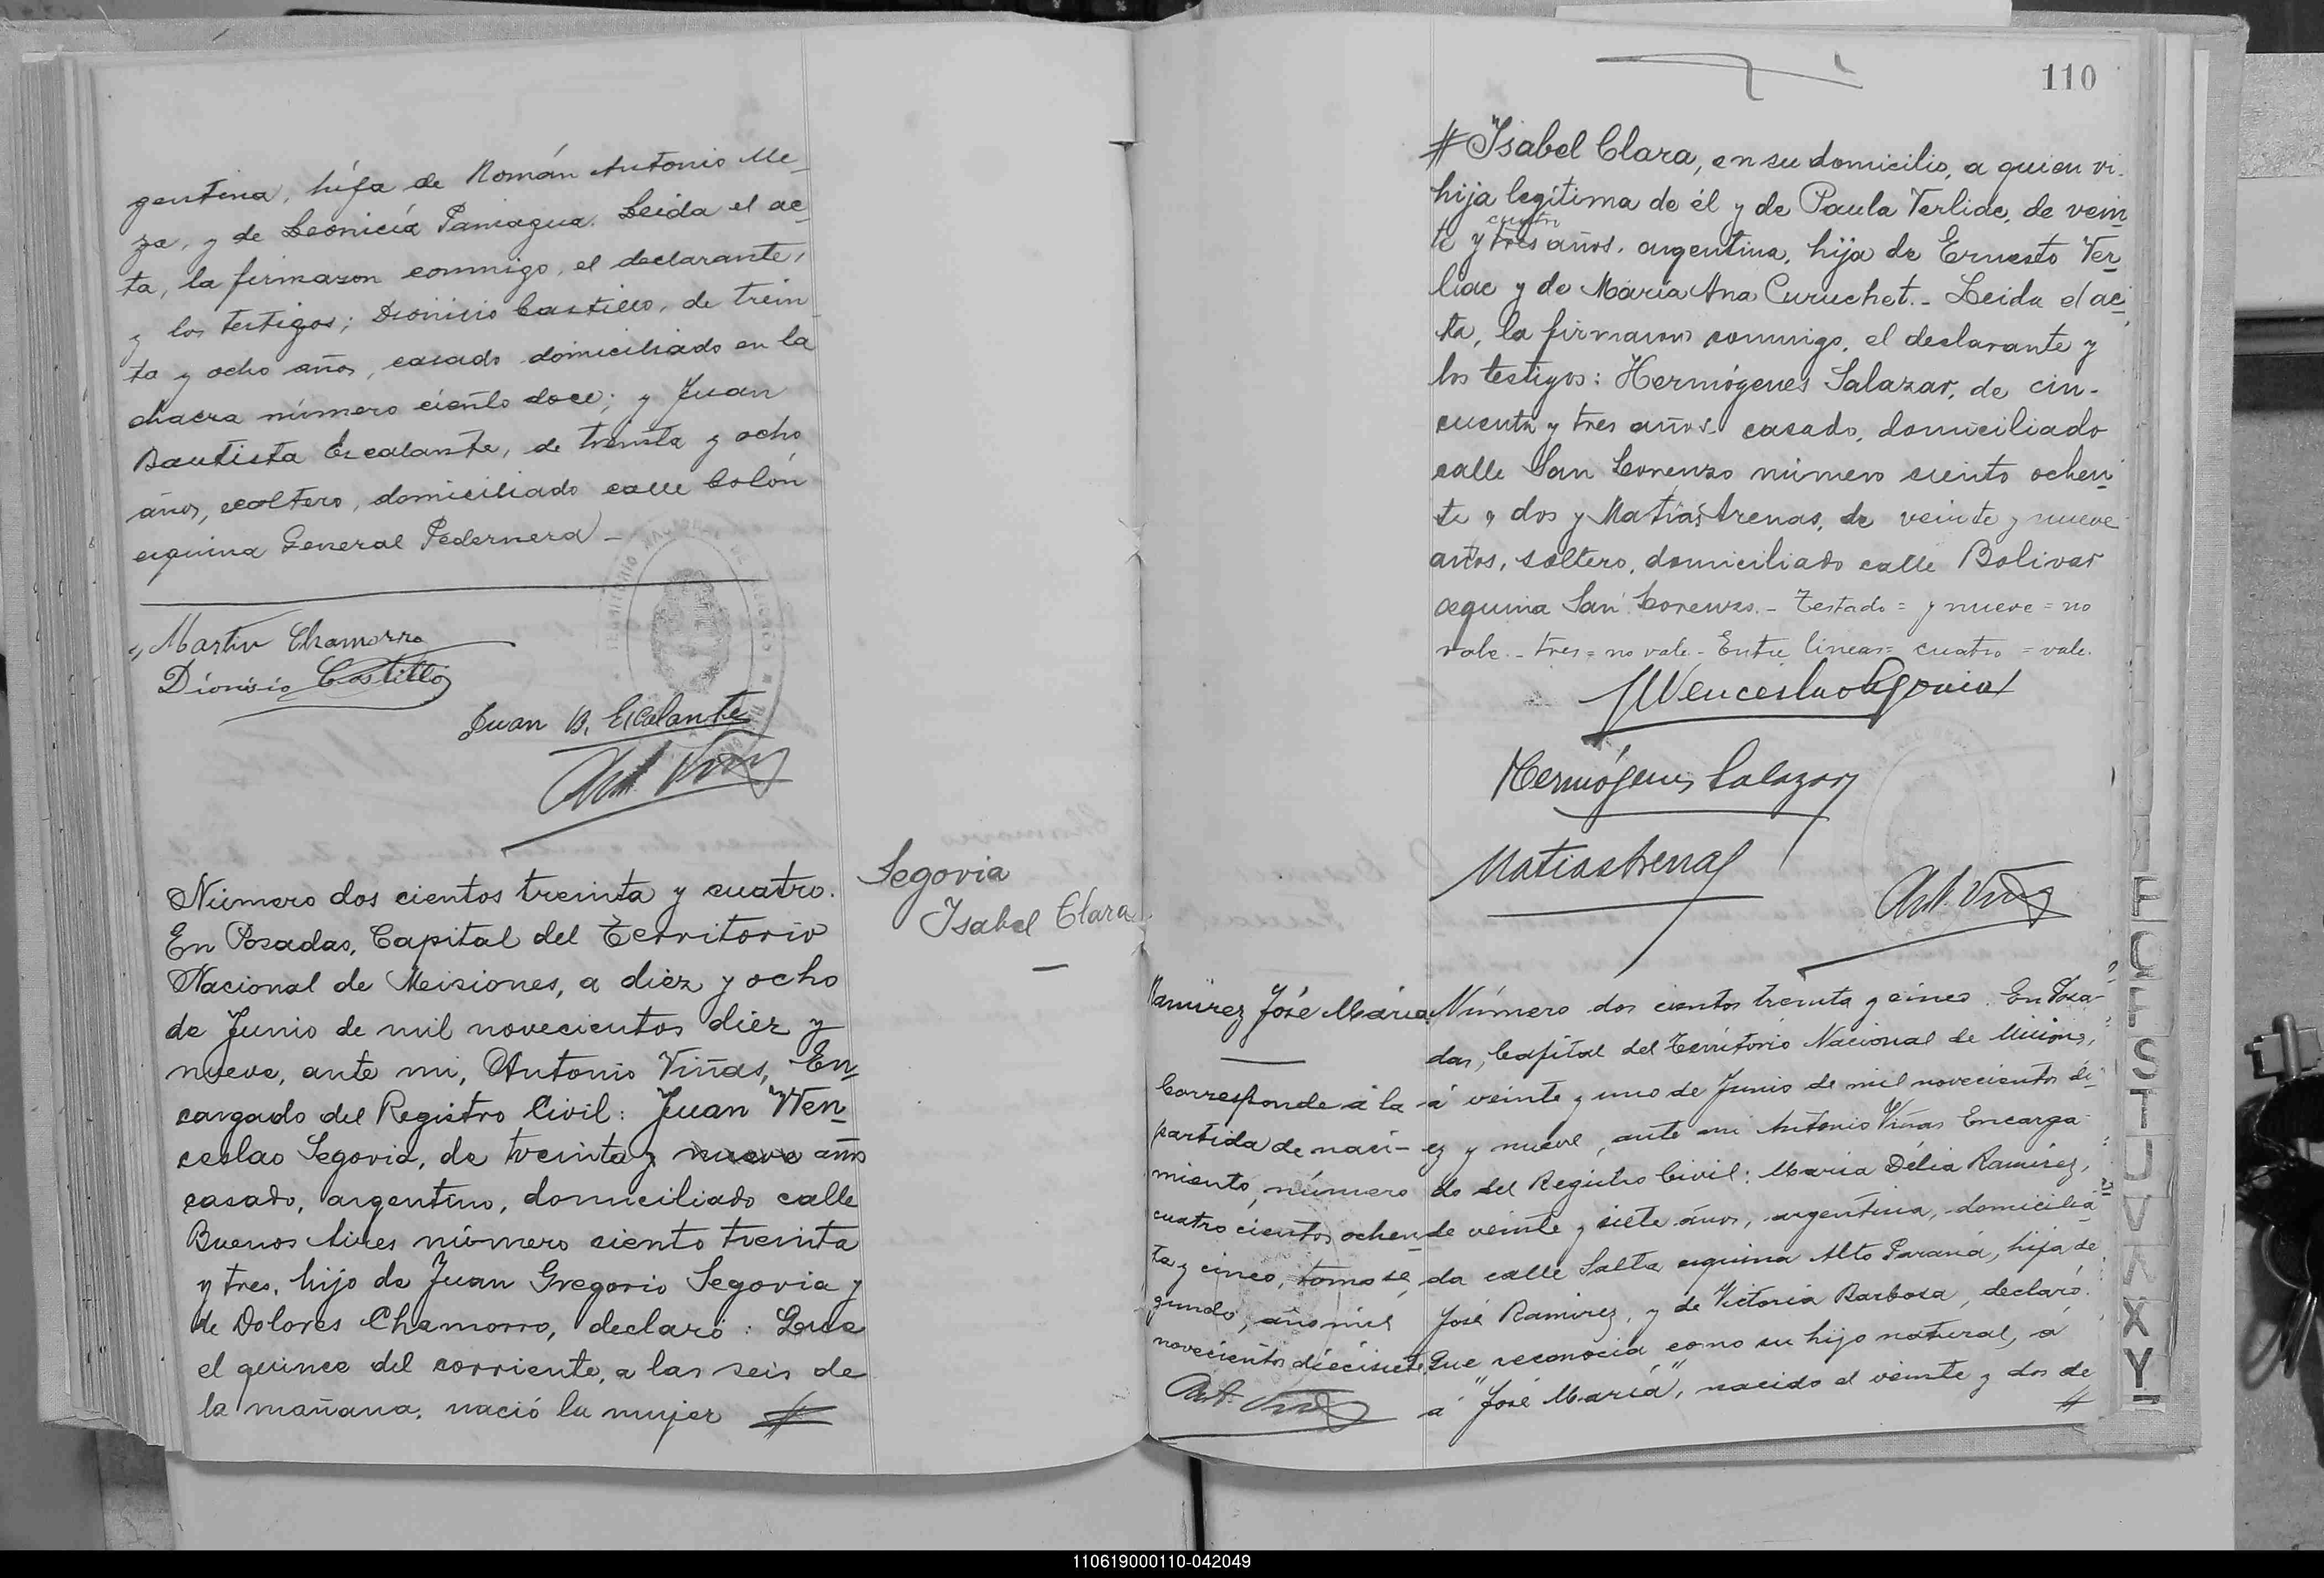 gentina, hija de Román Antonio Me-
za, y de Leonicia Paniagua. Leida el ac-
ta, la firmaron conmigo, el declarante,
y los testigos; Dionisio Castillo, de trein
ta y ocho años, casado domiciliado en la
chacra número ciento doce; y Juan
Bautista Escalante, de treinta y ocho
años, soltero, domiciliado calle Colón
esquina General Pedernera -
Martin Chamorro
Dionisio Castillo
Juan B. Escalante
Ant. Viñas
Número dos cientos treinta y cuatro.
En Posadas, Capital del Territorio
Nacional de Misiones, a diez y ocho
de Junio de mil novecientos diez y
nueve, ante mi, Antonio Viñas, En-
cargado del Registro Civil: Juan Wen-
ceslao Segovia, de treinta y nueve años
casado, argentino, domiciliado calle
Buenos Aires número ciento treinta
y tres, hijo de Juan Gregorio Segovia y
de Dolores Chamorro, declaró: Que
el quince del corriente, a las seis de
la mañana, nació la mujer #
Segovia
Isabel Clara
110
# "Isabel Clara, en su domicilio, a quien vi.
hija legítima de él y de Paula Verliac, de vein
cuatro
te y tres años, argentina, hija de Ernesto Ver
liac y de María Ana Curuchet. - Leida el ac-
ta, la firmaron conmigo, el declarante y
los testigos: Hermógenes Salazar, de cin-
cuenta y tres años casado, domiciliado
calle San Lorenzo número ciento ochen
ta y dos y Matías Arenas, de veinte y nueve
años, soltero, domiciliado calle Bolivar
esquina San Lorenzo. - Testado = y nueve = no
vale. - tres = no vale - Entre lineas = cuatro = vale.
J Wenceslao Segovia
Hermógenes Salazar
Matias Arenas
Ant. Viñas
Ramirez José María
Corresponde a la
partida de naci-
miento, número
cuatro cientos ochen
ta y cinco, tomo se
gundo, año mil
novecientos diecisiete.
Ant. Viñas
Número dos cientos treinta y cinco. En Posa-
das, Capital del Territorio Nacional de Misiones,
á veinte y uno de Junio de mil novecientos di-
ez y nueve, ante mi Antonio Viñas Encarga-
do del Registro Civil: María Délia Ramirez,
de veinte y siete años, argentina, domicilia
da calle Salta esquina Alto Paraná, hija de
José Ramirez, y de Victoria Barbosa, declaró.
Que reconocia como su hijo natural, a
a "José María", nacido el veinte y dos de
#
S
T
U
V
X
Y
110619000110-042049